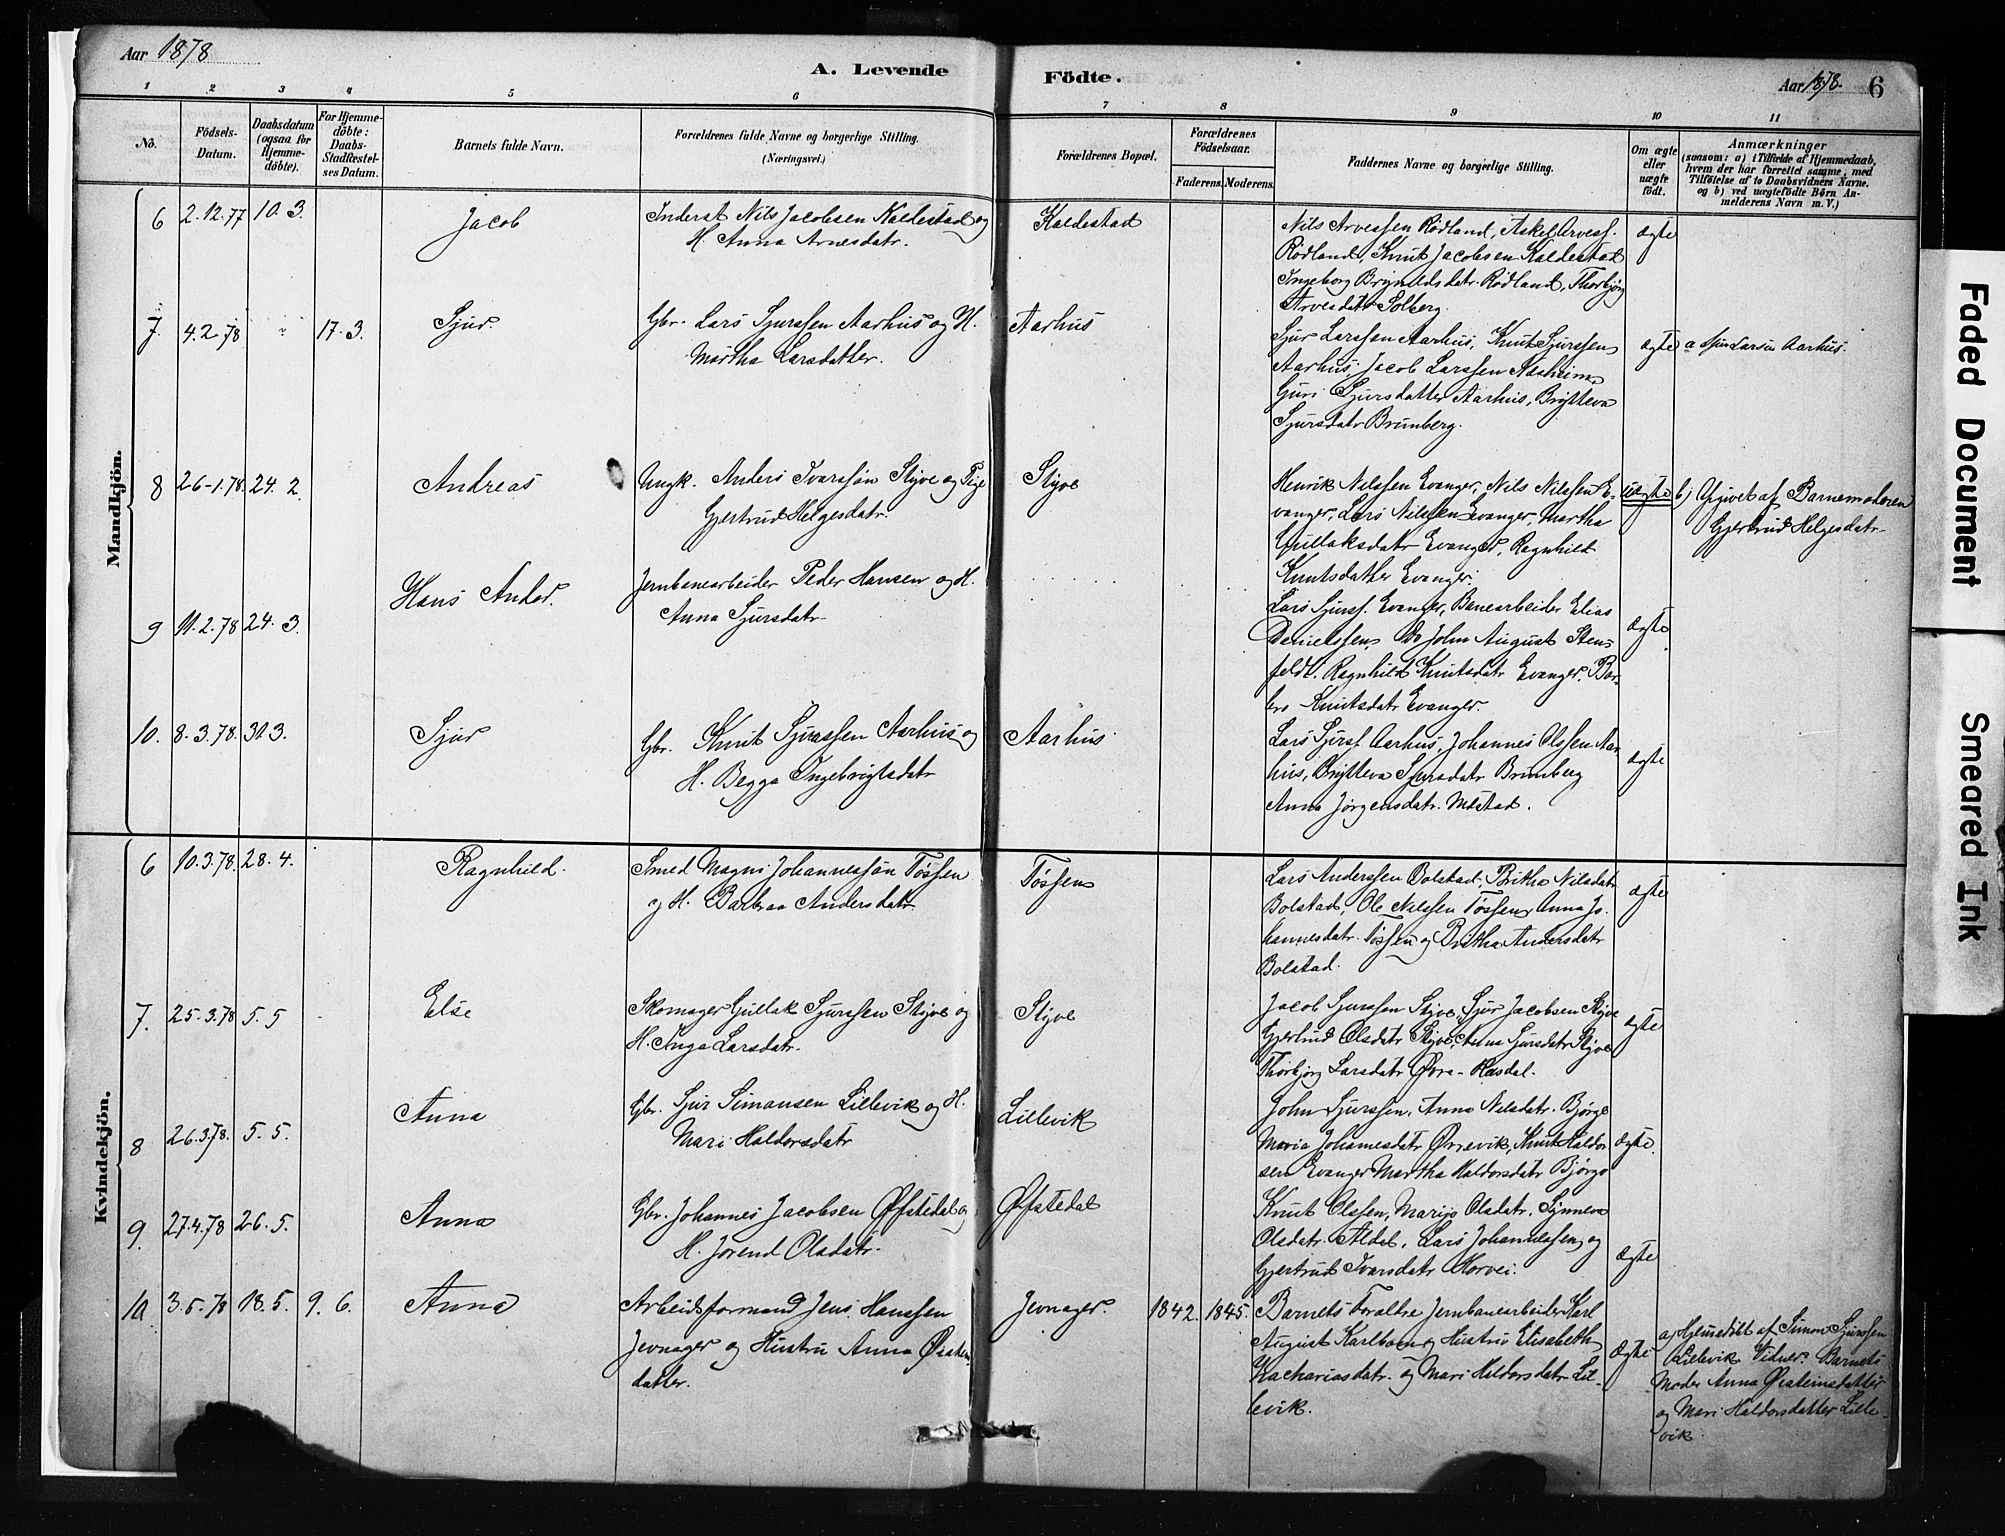 Aar 1878
A. Levende Födte.
Aar 1878. 6
1 2 3 4 5 6 7 8 9 10 11
No.
Födsels-Datum.
Daabsdatum (ogsaa for Hjemme-döbte).
For Hjemme-döbte: Daabs-Stadfæstel-ses Datum.
Barnets fulde Navn.
Forældrenes fulde Navne og borgerlige Stilling.
(Næringsvei.)
Forældrenes Bopæl.
Forældrenes Födselsaar.
Faderens. Moderens.
Faddernes Navne og borgerlige Stilling.
Om ægte eller uægte födt.
Anmærkninger
(saasom: a) i Tilfælde af Hjemmedaab,
hvem der har forrettet samme, med
Tilföielse af to Daabsvidners Navne.
og b) ved uægtefödte Börn An-
melderens Navn m. V.)
Mandkjön.
6 2.12.77 10.3. Jacob
Inderst Nils Jacobsen Kaldestad og
H. Anna Arnesdatr.
Kaldestad
Nils Arvessen Rødland, Askel Arvess.
Rødland, Knut Jacobsen Kaldestad
Ingeborg Brynildsdatr. Rødland, Thorbjørg
Arvesdatr Solberg.
ægte
7. 4.2.78 " 17.3. Sjur.
Gbr. Lars Sjurssen Aarhus og H.
Martha Larsdatter.
Aarhus
Sjur Larssen Aarhus, Knut Sjurssen
Aarhus, Jacob Larssen
Guri Sjursdatter Aarhus, Brytteva
Sjursdatr Brunberg.
ægte
a Sjur Larsen Aarhus.
8 26-1.78. 24.2. Andreas
Ungk. Anders Ivarssøn Styve og Pige
Gjertrud Helgesdatr.
Styve
Henrik Nilssen Evanger, Nils Nilssen E-
vanger, Lars Nilssen Evanger, Martha
Gullaksdatr Evanger, Ragnhild
Knutsdatter Evanger.
uægte
b) Opgivet af Barnemoderen
Gjertrud Helgesdatr
9 11.2.78 24.3. Hans Ander.
Jernbanearbeider Peder Hansen og H.
Anna Sjursdatr
Lars Sjurss. Evanger, Banearbeider Elias
Danielssen, Do John August Sten-
feldt. Ragnhild Knutsdatr Evanger. Bar-
bro Knutsdatr Evanger.
ægte
10. 8.3.78. 31.3. Sjur
Gbr. Knut Sjurssen Aarhus og
H. Begga Ingebrigtsdatr
Aarhus
Lars Sjurss. Aarhus, Johannes Olssen Aar-
hus, Brytteva Sjursdatr Brunberg
Anna Jørgensdatr. Mestad.
ægte
Kvindekjön.
6 10.3.78. 28.4. Ragnhild.
Smed Magni Johannessøn Tøssen
og H. Barbraa Andersdatr
Tøssen
Lars Anderssen Bolstad, Britha Nilsdatr
Bolstad, Ole Nilssen Tøssen, Anna Jo-
hannesdatr. Tøssen og Britha Andersdatr
Bolstad.
ægte
7. 25.3.78 5.5 Else
Skomager Gullak Sjurssen Styve og
H. Inga Larsdatr.
Styve
Jacob Sjurssen Styve, Sjur Jacobsen Styve
Gjertrud Olsdatr Styve, Anna Sjursdatr Styve
Thorbjørg Larsdatr Øvre-Rasdal.
ægte
8 26.3.78. 5.5. Anna
Gbr. Sjur Simonsen Lillevik og H.
Mari Haldorsdatr
Lillevik
John Sjurssen, Anna Nilsdatr. Bjørge
Maria Johannesdatr Ørrevik, Knut Haldor-
sen Evanger Martha Haldorsdatr Bjørge
ægte.
9. 27.4.78 26.5. Anna
Gbr. Johannes Jacobsen Øfstedal og
H. Jorend Olsdatr.
Øfstedal
Knut Olssen, Maryo Olsdatr, Synneva
Olsdatr. Aldal, Lars Johannessen og
Gjertrud Ivarsdatr Horvei.
ægte
10. 3.5.78 18.5. 9.6. Anna
Arbeidsformand Jens Hanssen
Jevnager og Hustru Anna Østens-
datter.
Jevnager. 1842. 1845.
Barnets Foraltre Jernbanearbeider Karl
August Karlsson og Hustru Elisabeth
Zachariasdatr. og Mari Haldorsdatr Lil-
levik.
ægte
a, Hjemedøbt af Simon Sjurssen
Lillevik Vidner: Barnets
Moder Anna Østeinsdatter
og Mari Haldorsdatter Lille-
vik.
Faded Document
Smeared Ink